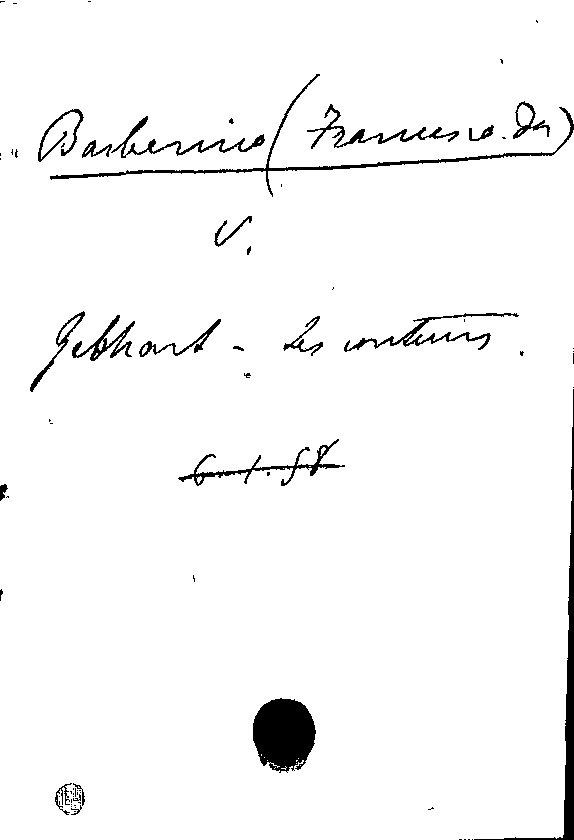 Barberino (Francesco. Da)
V.
Gebhart - Les conteurs.
6.1.58